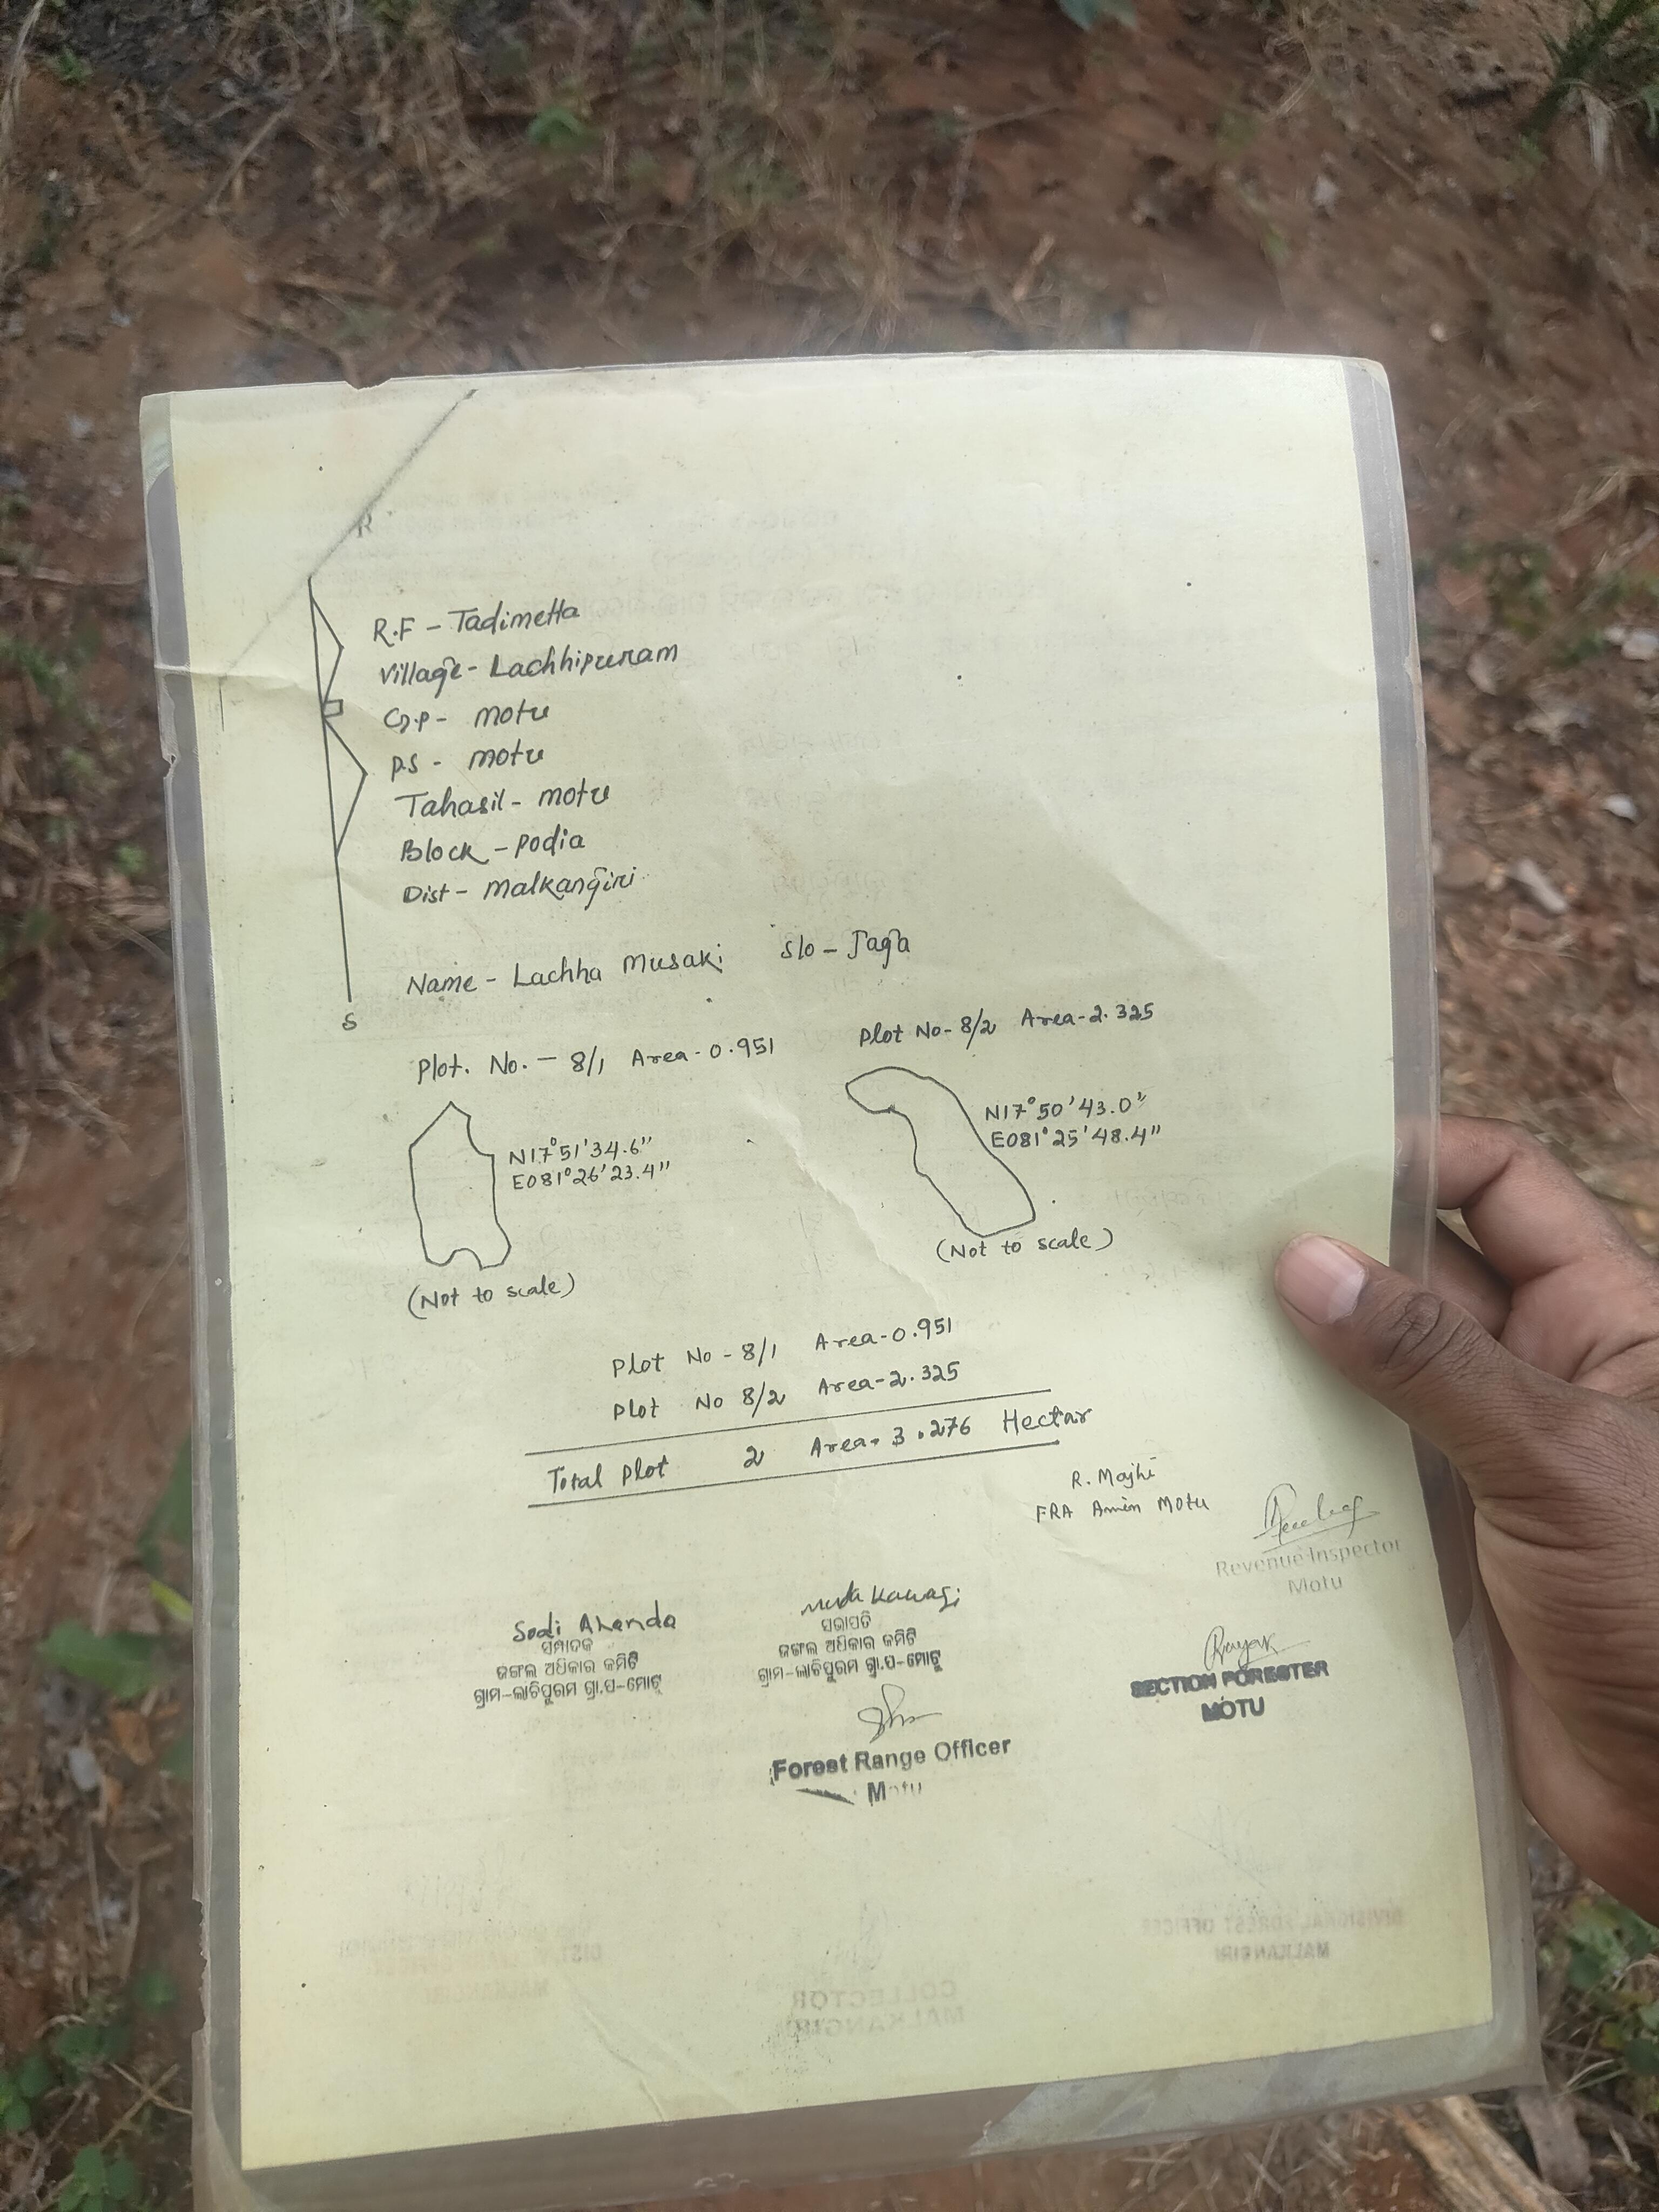 R
R.F - Tadimetta
Village - Lachhipuram
G.P - Motu
P.S - Motu
Tahasil - Motu
Block - Podia
Dist - Malkangiri
Name - Lachha Musaki S/o - Jaga
S
Plot. No. - 8/1 Area - 0.951
Plot No - 8/2 Area - 2.325
N17°51'34.6"
E081°26'23.4"
(Not to scale)
N17°50'43.0"
E081°25'48.4"
(Not to scale)
Plot No - 8/1 Area - 0.951
Plot No 8/2 Area - 2.325
Total Plot 2 Area - 3.276 Hectar
R. Majhi
FRA Amin Motu
Revenue Inspector
Motu
Sodi
ସମ୍ପାଦକ
ଜଙ୍ଗଲ ଅଧିକାର କମିଟି
ଗ୍ରାମ-ଲାଚିପୁରମ ଗ୍ରା.ପ-ମୋଟୁ
ସଭାପତି
ଜଙ୍ଗଲ ଅଧିକାର କମିଟି
ଗ୍ରାମ-ଲାଚିପୁରମ ଗ୍ରା.ପ-ମୋଟୁ
SECTION FORESTER
MOTU
Forest Range Officer
Motu
DIVISIONAL FOREST OFFICER
MALKANGIRI
COLLECTOR
MALKANGIRI